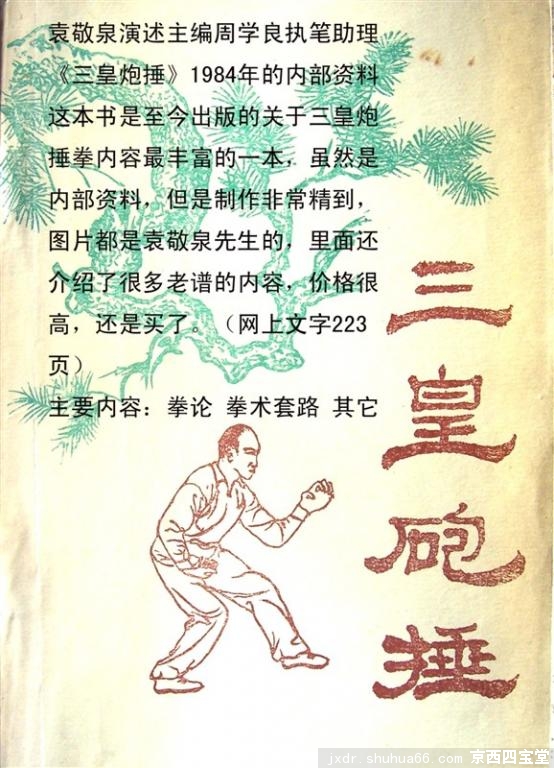 袁敬泉演述主编周学良执笔助理
《三皇炮捶》1984年的内部资料
这本书是至今出版的关于三皇炮
捶拳内容最丰富的一本，虽然是
内部资料，但是制作非常精到，
图片都是袁敬泉先生的，里面还
介绍了很多老谱的内容，价格很
高，还是买了。（网上文字223
页）
主要内容：拳论 拳术套路 其它
三皇砲捶
jxdr.shuhua66.com 京西四宝堂